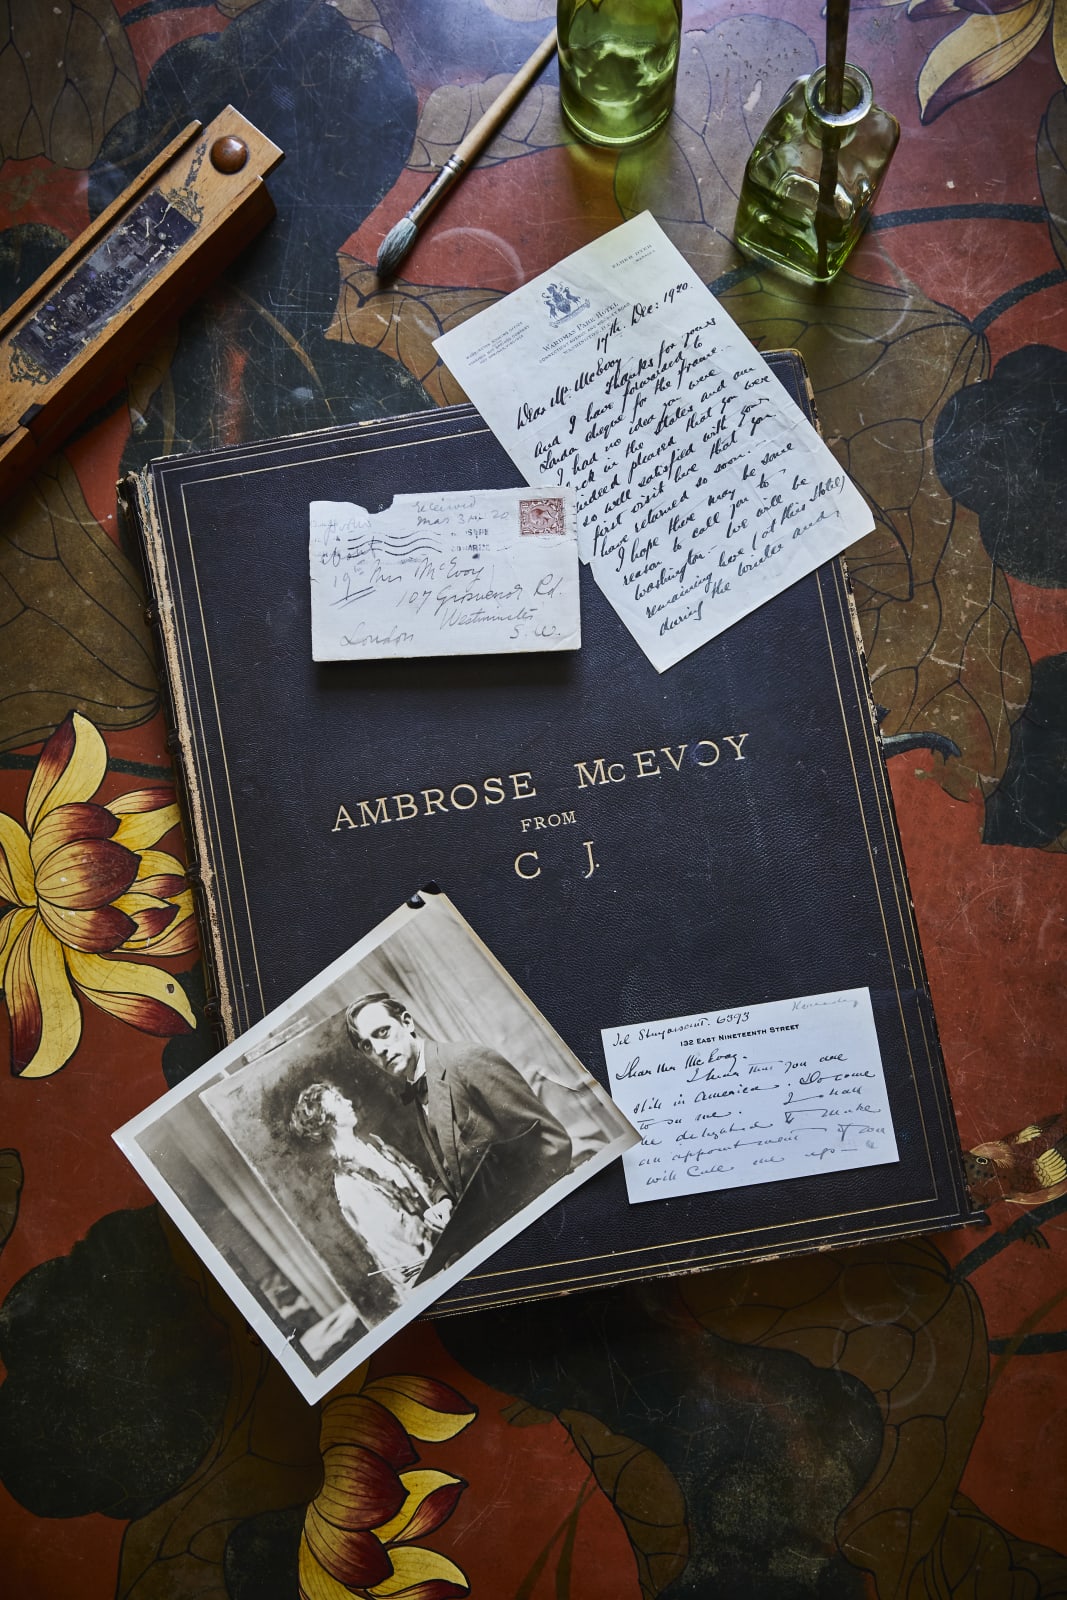 ELMER DYER
MANAGER
WARDMAN PARK HOTEL
CONNECTICUT AVENUE AND WOODLEY ROAD
WASHINGTON, D.C.
17th. Dec: 1920.
Dear Mr. McEvoy
Thanks for yours
and I have forwarded to
London cheque for the frame.
I had no idea you were
back in the States and am
indeed pleased that you were
so well satisfied with your
first visit here that you
have returned so soon.
I hope there may be some
reason to call you to
Washington. We will be
remaining here (at this Hotel)
during the winter and
received
Mar 3rd 20
about
19th Mrs McEvoy
107 Grosvenor Rd.
Westminster
London S. W.
AMBROSE McEVOY
FROM
C J.
Tel Stuyvesant. 6393
132 EAST NINETEENTH STREET
Dear Mr McEvoy.
I hear that you are
still in America. Do come
to see me. I shall
be delighted to make
an appointment if you
will call me up—